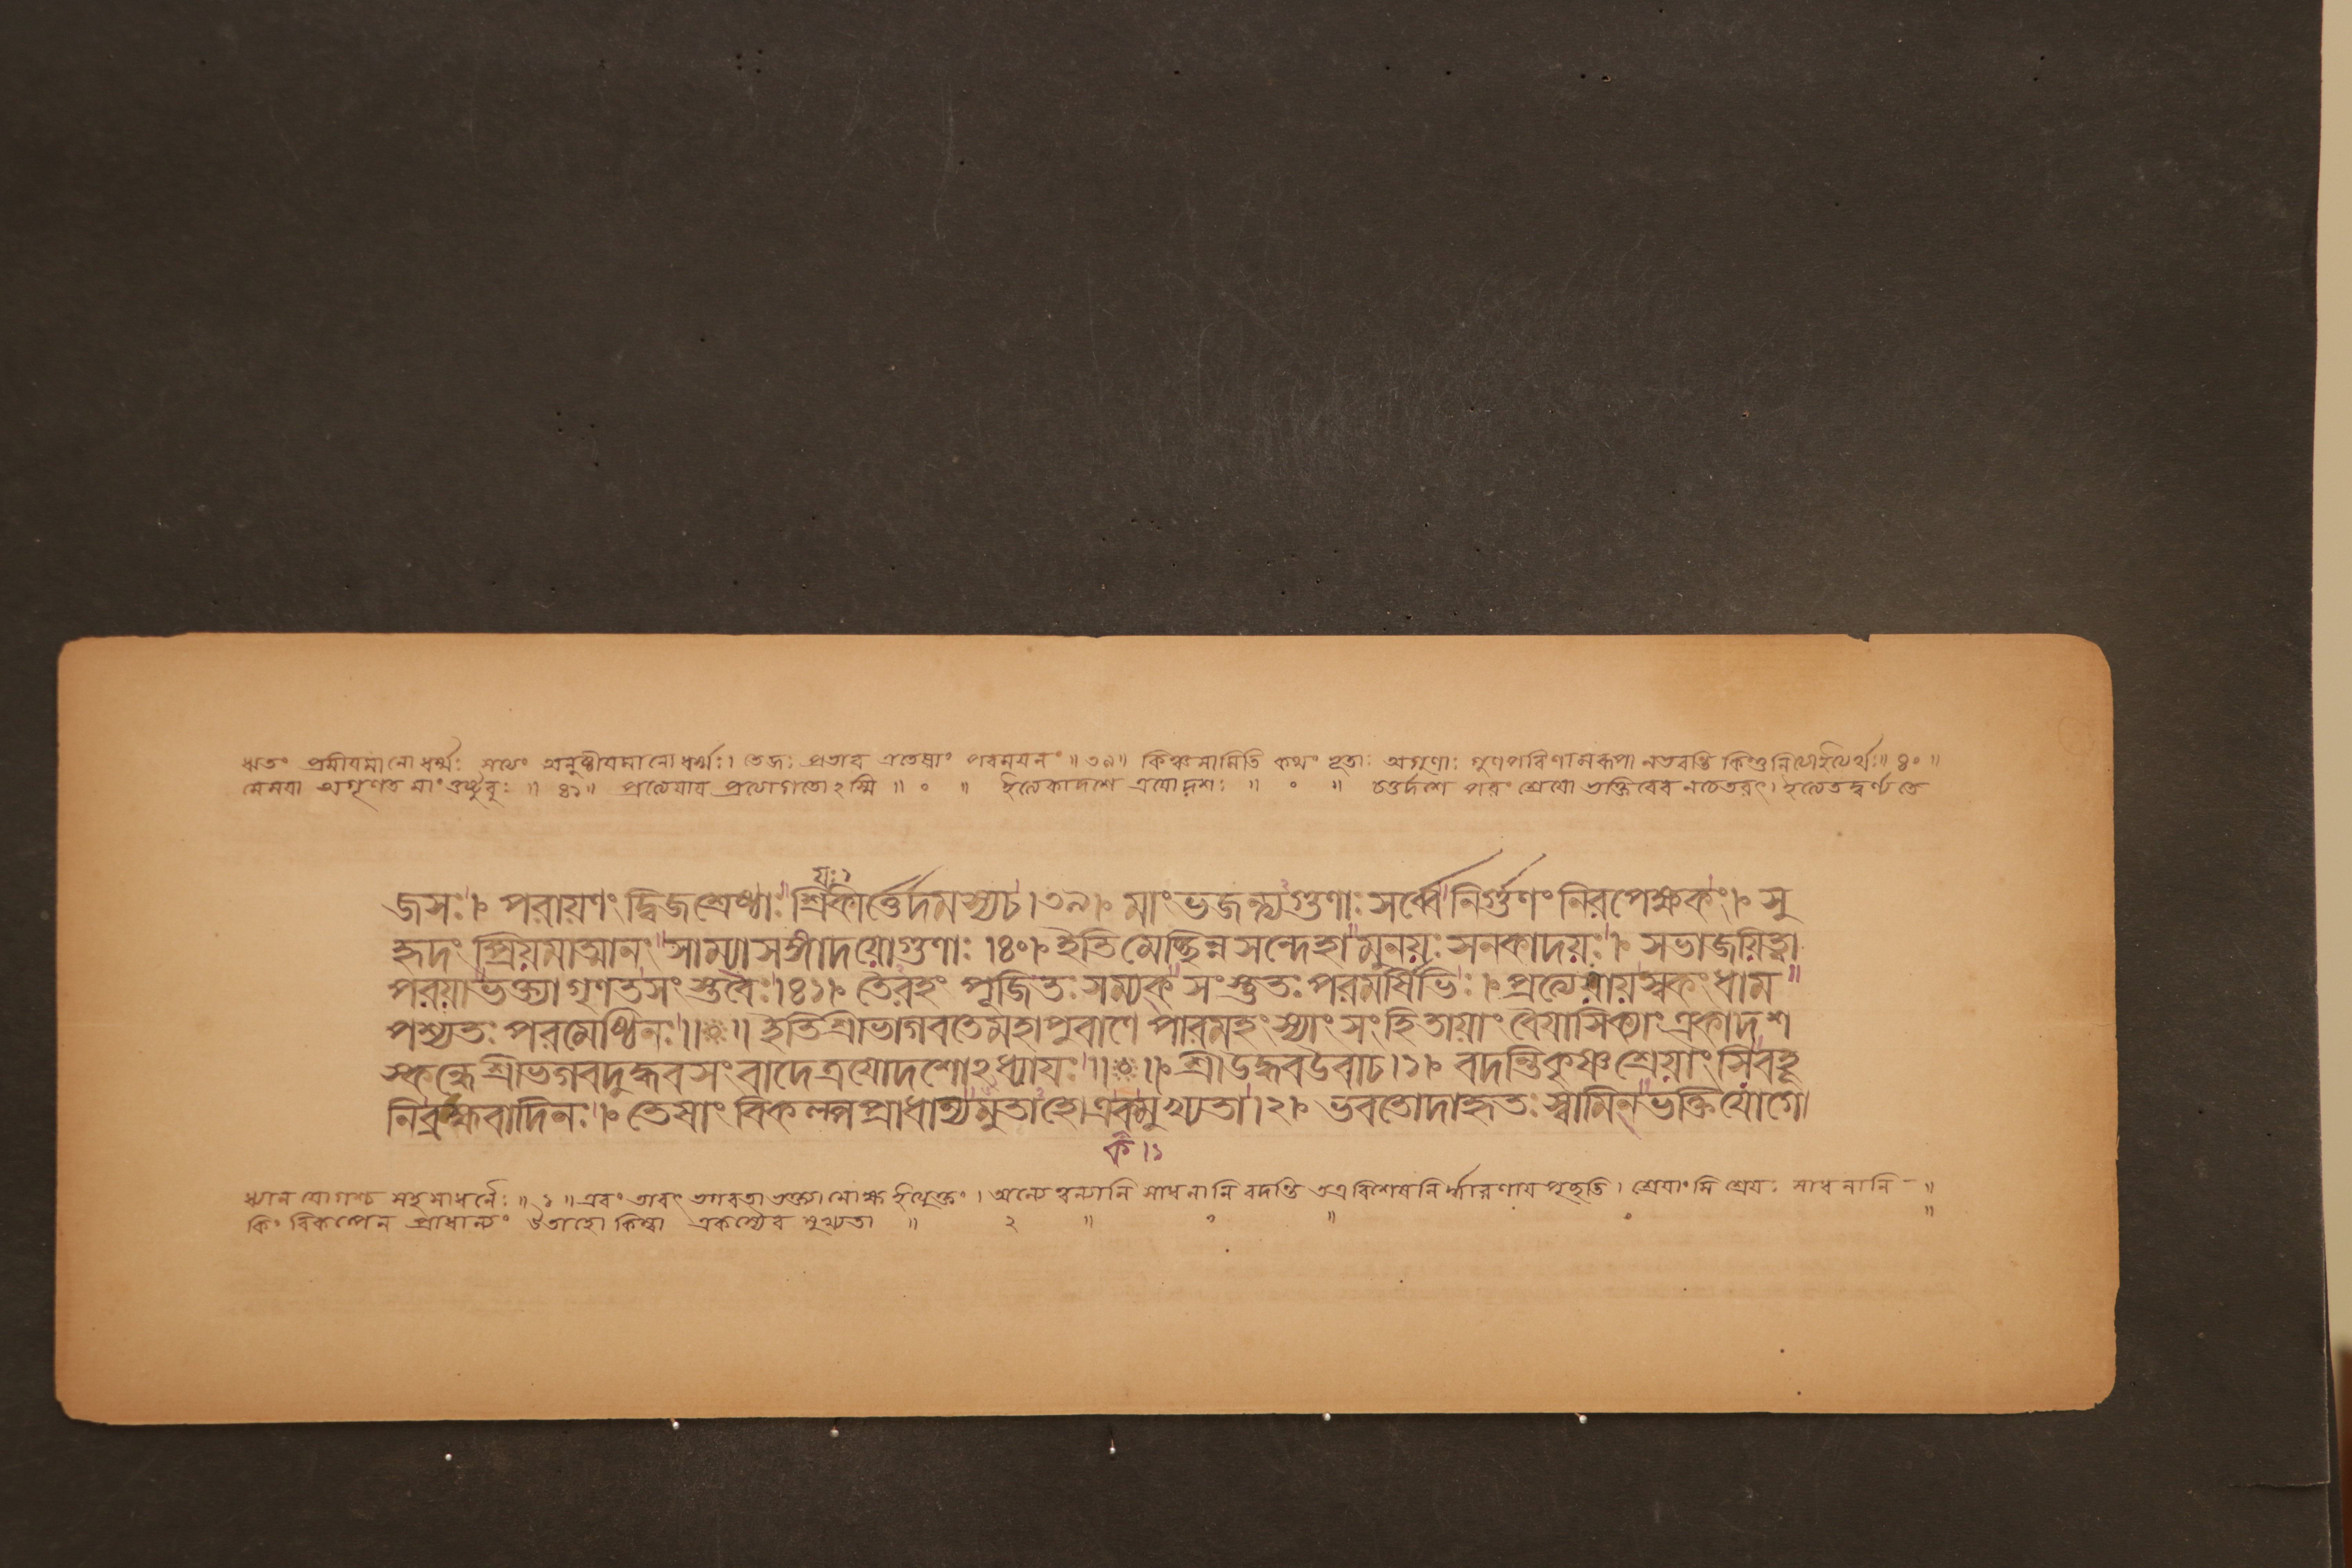 ঋতং প্রমীয়মানো ধর্ম্মঃ সত্যং অনুষ্ঠীয়মানো ধর্ম্মঃ। তেজঃ প্রভাব এতেষাং পরময়নং ॥ ৩৯॥ কিঞ্চ মামিতি কথং ভূতাঃ অগুণাঃ গুণপরিণামরূপা নভবন্তি কিন্তুনিত্যাইত্যর্থঃ॥ ৪০ ॥
মেময়া অগৃণত মাং তুষ্টুবুঃ ॥ ৪১॥ প্রত্যেয়ায় প্রত্যাগতোঽস্মি ॥ ০ ॥ ইত্যেকাদশে ত্রয়োদশঃ ॥ ০ ॥ চতুর্দশে পরং শ্রেয়ো ভক্তিরেব নচেতরৎ। ইত্যেতদ্বর্ণ্যতে
যঃ১
জসঃ।৹ পরায়ণং দ্বিজশ্রেষ্ঠাঃ শ্রিকীর্ত্তের্দমস্যচ।৩৯।৹ মাংভজন্ত্যগুণাঃ সর্ব্বেনির্গুণং নিরপেক্ষকং।৹ সু
হৃদং প্রিয়মাত্মানং সাম্যাসঙ্গাদয়োগুণাঃ।৪০।৹ ইতিমেচ্ছিন্নসন্দেহামুনয়ঃ সনকাদয়ঃ।৹ সভাজয়িত্বা
পরয়াভক্ত্যাগৃণতসংস্তবৈঃ।৪১।৹ তৈরহং পূজিতঃ সম্যক্ সংস্তুতঃ পরমর্ষিভিঃ।৹ প্রত্যেয়ায়স্বকংধাম
পশ্যতঃ পরমেষ্ঠিনঃ॥০॥ ইতিশ্রীভাগবতেমহাপুরাণে পারমহংস্যাং সংহিতায়াং বৈয়াসিক্যাং একাদশ
স্কন্ধেশ্রীভগবদুদ্ধবসংবাদেত্রয়োদশোঽধ্যায়ঃ॥০॥৹ শ্রীউদ্ধবউবাচ।১।৹ বদন্তিকৃষ্ণশ্রেয়াংসিবহূ
নিব্রহ্মবাদিনঃ।৹ তেষাং বিকল্পপ্রাধান্যমুতাহোএকমুখ্যতা।২।৹ ভবতোদাহৃতঃ স্বামিন্ভক্তিযোগো
ক।১
ধ্যানযোগশ্চ সহসাধনৈঃ॥ ১ ॥ এবং তাবৎ ভগবতা ভক্ত্যা মোক্ষ ইত্যুক্তং। অন্যেত্বন্যানি সাধনানি বদন্তি তত্র বিশেষনির্দ্ধারণায় পৃচ্ছতি। শ্রেয়াংসি শ্রেয়ঃ সাধনানি - ॥
কিং বিকল্পেন প্রাধান্যং উতাহো কিম্বা একস্যৈব মুখ্যতা ॥ ২ ॥ ০ ॥ ০ ॥